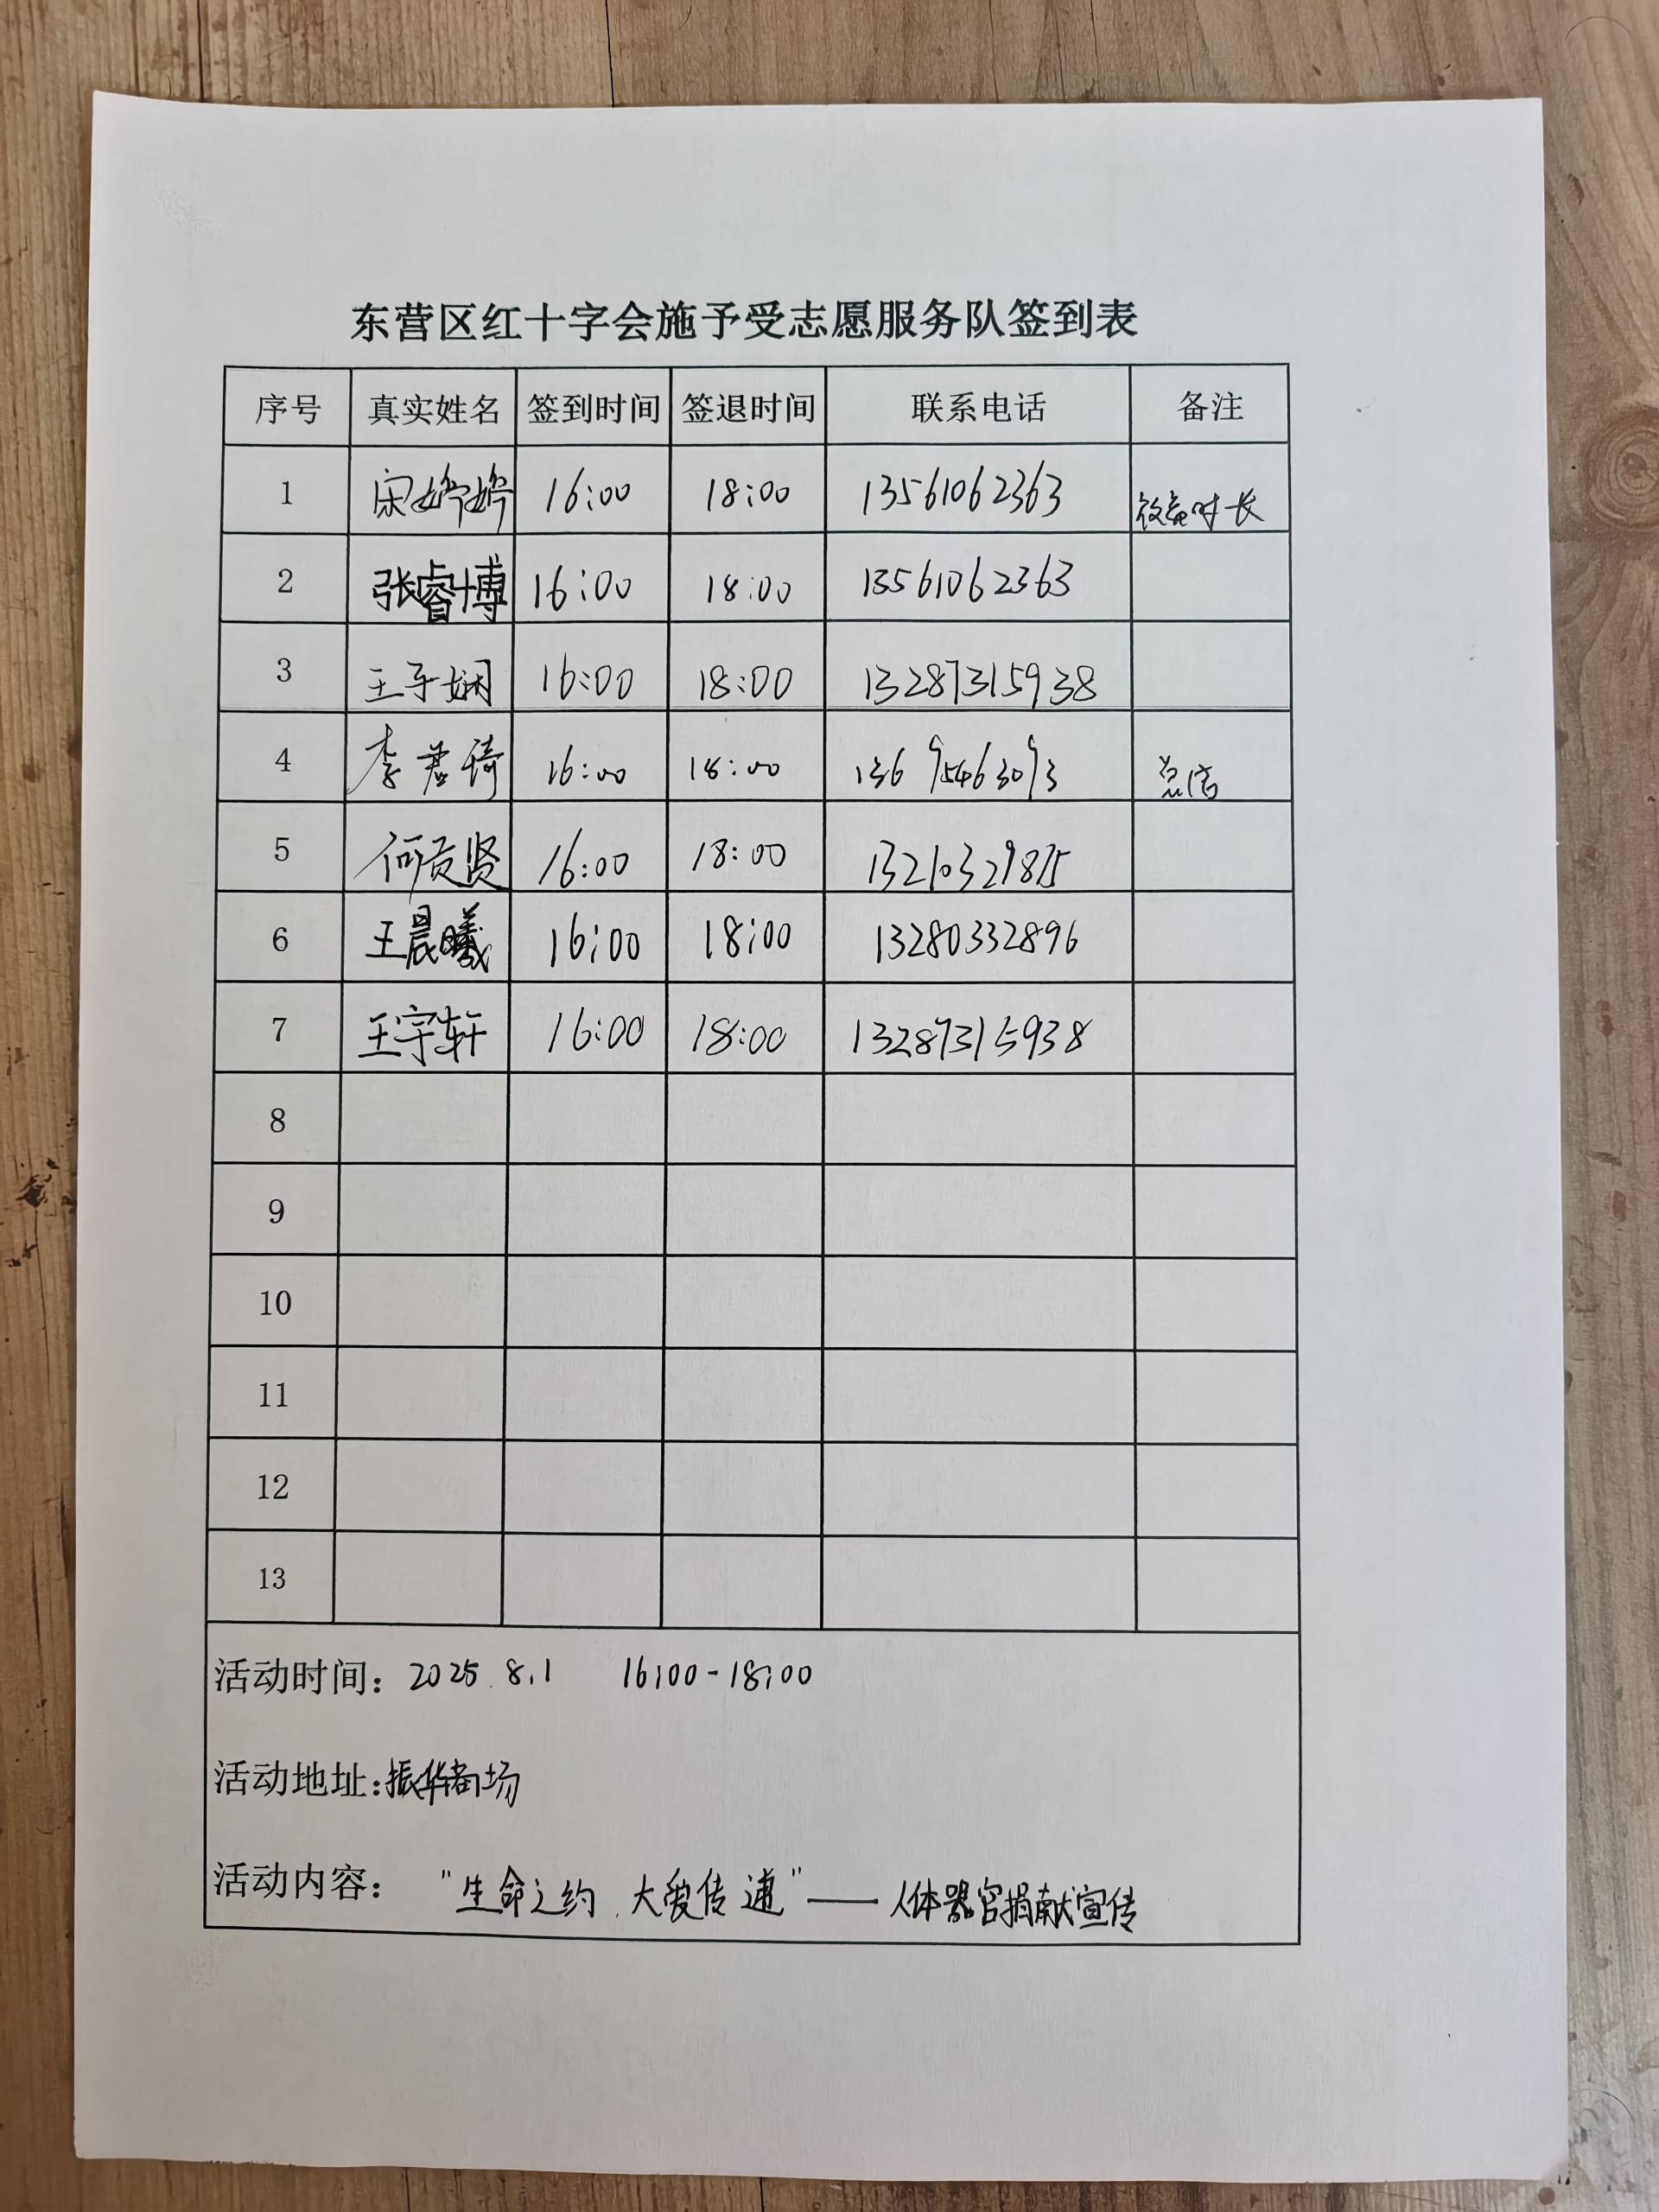 东营区红十字会施予受志愿服务队签到表
序号 真实姓名 签到时间 签退时间 联系电话 备注
1 宋婷婷 16:00 18:00 13561062363 时长
2 张睿博 16:00 18:00 13561062363
3 王子娴 16:00 18:00 13287315938
4 李君琦 16:00 18:00 13695463093
5 何贡贤 16:00 18:00 13210329875
6 王晨曦 16:00 18:00 13280332896
7 王宇轩 16:00 18:00 13287315938
8
9
10
11
12
13
活动时间：2025.8.1 16:00-18:00
活动地址：振华商场
活动内容：“生命之约．大爱传递”——人体器官捐献宣传